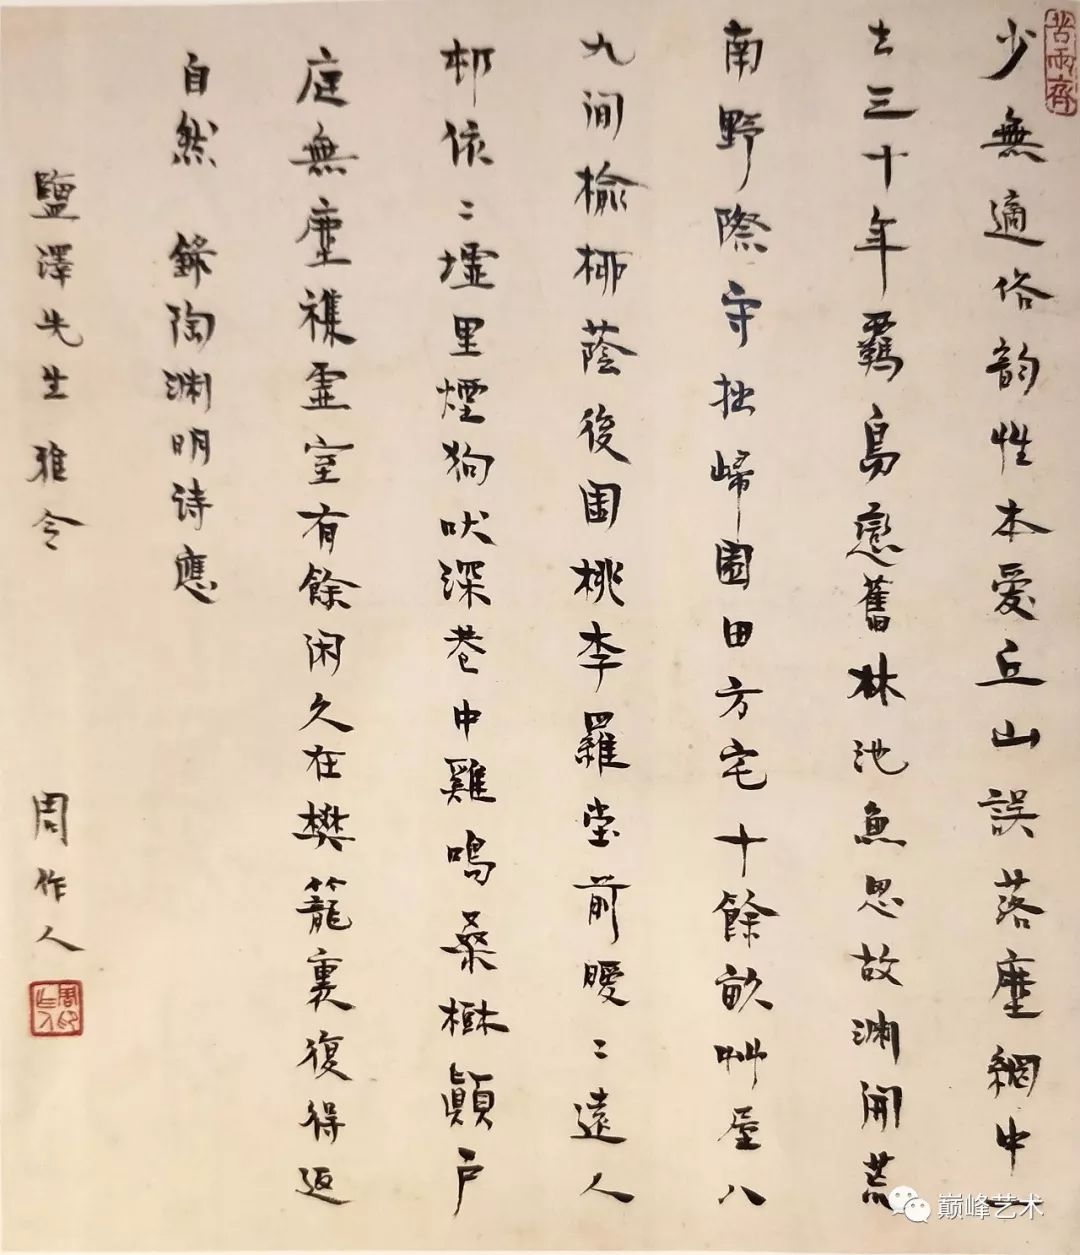 苦雨齋
少無適俗韵性本愛丘山誤落塵網中一
去三十年羈鳥戀舊林池魚思故渊開荒
南野際守拙歸園田方宅十餘畝艸屋八
九间榆柳蔭後園桃李羅堂前曖〻遠人
邨依〻墟里煙狗吠深巷中雞鳴桑樹顛户
庭無塵襍虛室有餘闲久在樊籠裏復得返
自然 錄陶渊明诗應
鹽澤先生雅令
周作人
周作人印
巅峰艺术